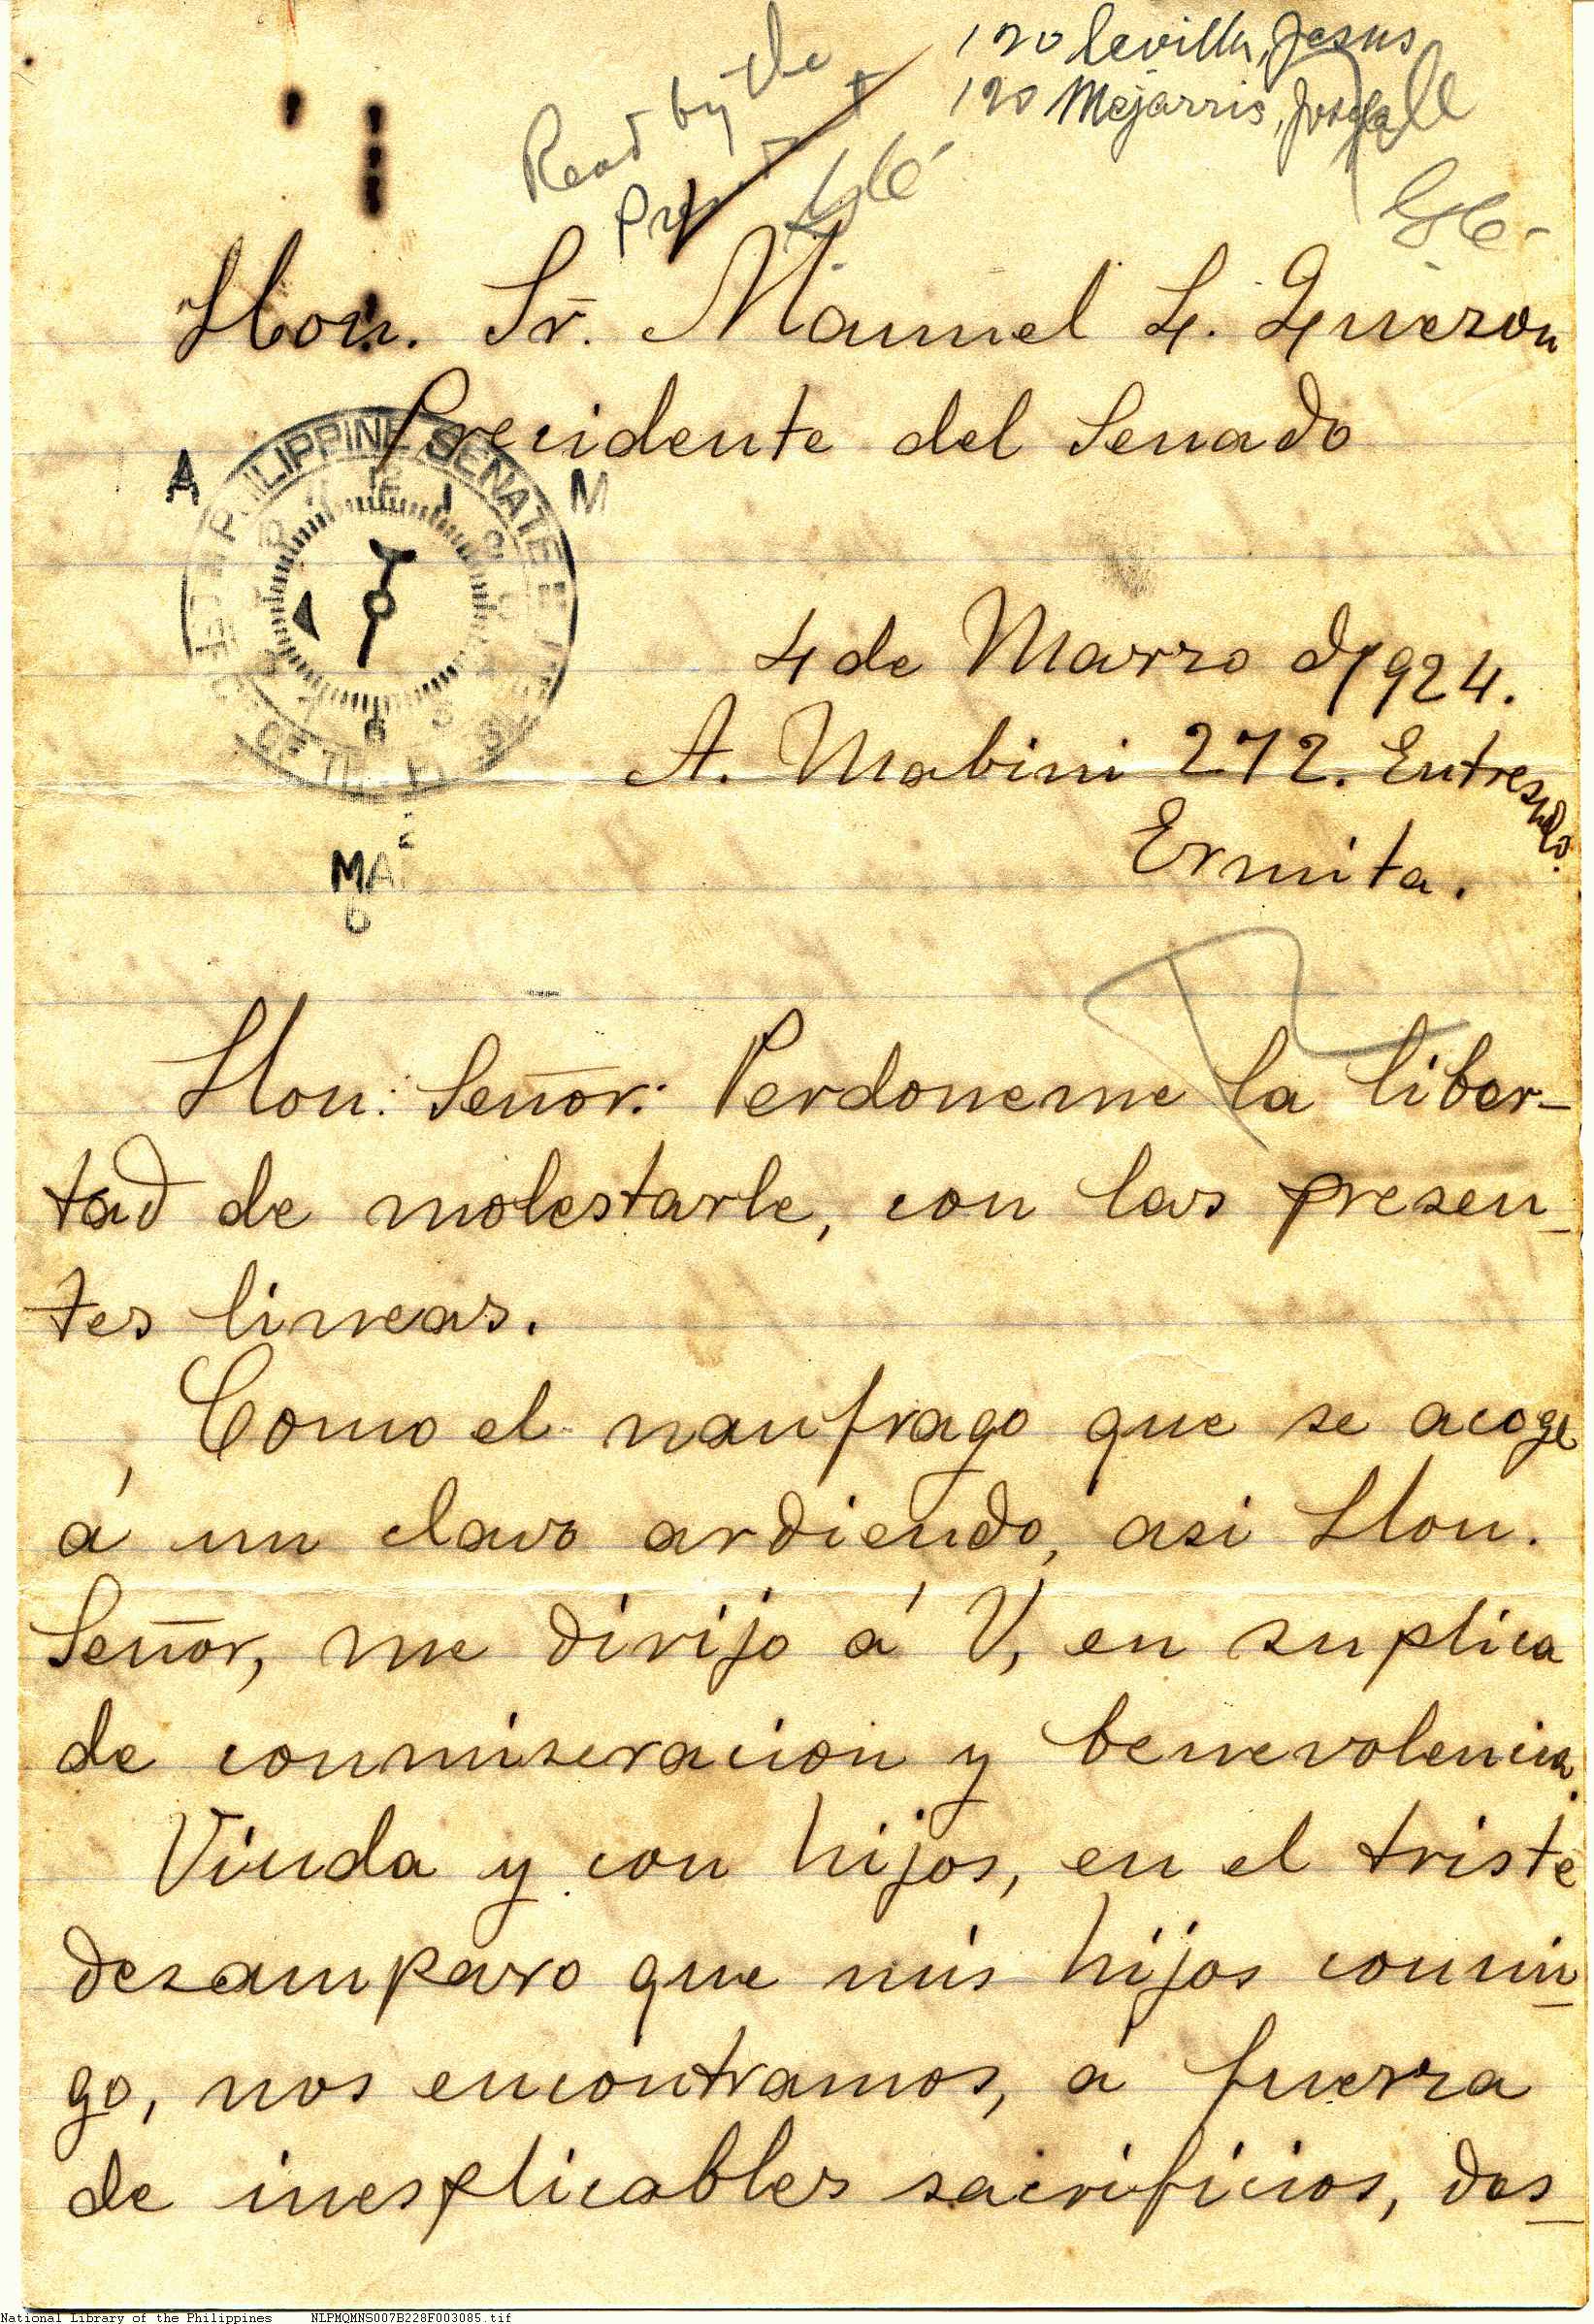 120 Sevilla, Jesus
120 Mejarris, Josefa
Read by the
Hon. Sr. Manuel L. Quezon
Precidente del Senado
A M
PHILIPPINE SENATE
OF THE
MAR
6
4 de Marzo d/1924.
A. Mabini 272. Entresuelo.
Ermita.
Hon. Señor: Perdoneme la liber-
tad de molestarle, con las presen-
tes lineas.
Como el naufrago que se acoge
á un clavo ardiendo, asi Hon.
Señor, me dirijo á V, en suplica
de conmiseracion y benevolencia.
Viuda y con hijos, en el triste
desamparo que mis hijos conmi-
go, nos encontramos, a fuerza
de inesplicables sacrificios, des-
National Library of the Philippines NLPMQMNS007B228F003085.tif